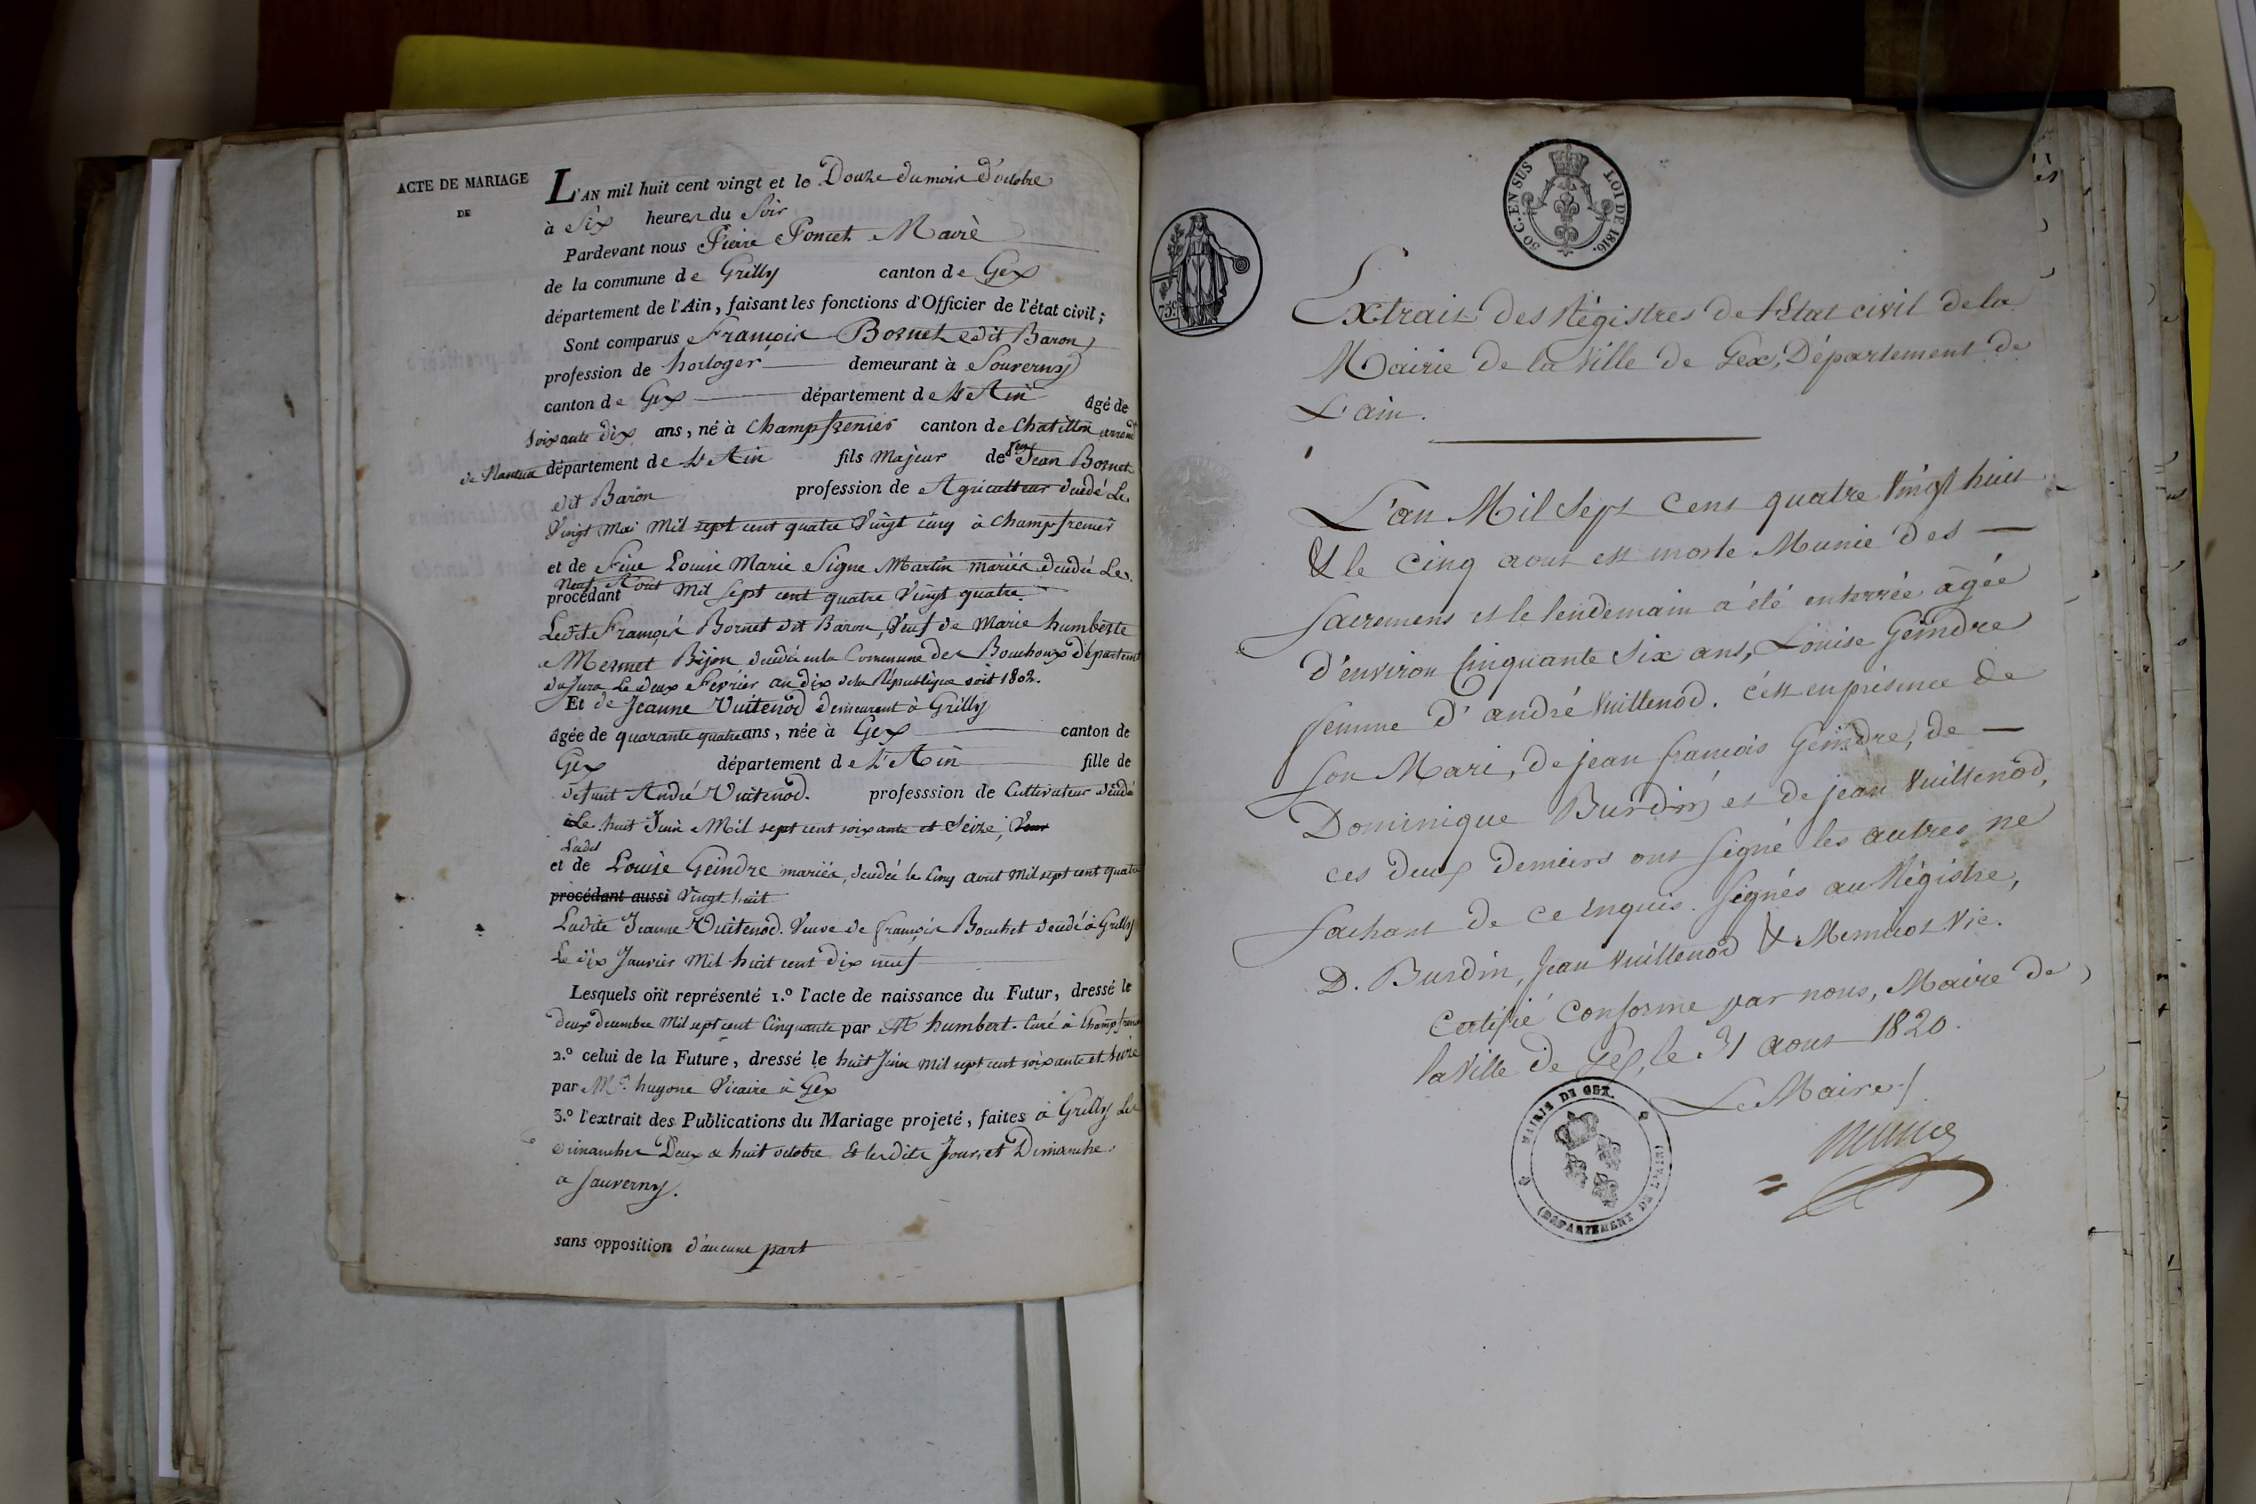 ACTE DE MARIAGE
DE
L'AN mil huit cent vingt et le Douze du mois d'octobre
à Six heures du Soir
Pardevant nous Pierre Poncet Maire
de la commune de Grilly canton de Gex
département de l'Ain, faisant les fonctions d'Officier de l'état civil;
Sont comparus François Bornet dit Baron
profession de horloger demeurant à Souverny
canton de Gex département de L'Ain âgé de
soixante dix ans, né à Champfremier canton de Chatillon arrond
de Nantua département de L'Ain fils Majeur de feu Jean Bornet
dit Baron profession de Agriculteur décédé Le
Vingt Mai Mil sept cent quatre Vingt cinq à Champfremier
et de Feue Louise Marie Signe Martin mariée décédée Le
Neuf Aout Mil Sept cent quatre Vingt quatre
procédant
Ledit François Bornet dit Baron, Veuf de Marie humberte
Mermet Bijon décédée en la Commune des Bouchoux départemt
du Jura Le deux Fevrier an dix de la République soit 1802.
Et de Jeanne Vuitenod demeurant à Grilly
âgée de quarante quatre ans, née à Gex canton de
Gex département de L'Ain fille de
defunt André Vuitenod. professsion de Cultivateur décédé
Le huit Juin Mil sept cent soixante et Seize,
et de Louise Geindre mariée, décédée le cinq aout mil sept cent quatre
procédant aussi Vingt huit
Ladite Jeanne Vuitenod. Veuve de François Bouchet décédé à Grilly
Le dix Janvier Mil huit cent dix neuf
Lesquels ont représenté 1.º l'acte de naissance du Futur, dressé le
deux decembre Mil sept cent Cinquante par M humbert. Curé à Champfremier
2.º celui de la Future, dressé le huit Juin mil sept cent soixante et seize
par Mr. hugone Vicaire à Gex
3.º l'extrait des Publications du Mariage projeté, faites à Grilly Les
dimanches Deux & huit octobre Et lesdits Jours et Dimanches
a Sauverny.
sans opposition d'aucune part
30 C. EN SUS
LOI DE 1816.
75c
Extrait des Régistres de l'Etat civil de la
Mairie de la Ville de Gex, Département de
L'ain.
L'an Mil Sept Cent quatre Vingt huit
& le Cinq aout est morte Munie des
Sacremens et le lendemain a été enterrée âgée
d'environ Cinquante Six ans, Louise Geindre
femme d'andré Vuillenod. c'est en présence de
son Mari, de jean françois Geindre, de
Dominique Burdin, et de jean Vuillenod,
ces deux derniers ont signé les autres ne
Sachant de ce enquis. Signés au Régistre,
D. Burdin, Jean Vuillenod & Vic.
Certifié Conforme par nous, Maire de
la Ville de Gex, le 31 aout 1820.
Le Maire
MAIRIE DE GEX.
(DÉPARTEMENT DE L'AIN)